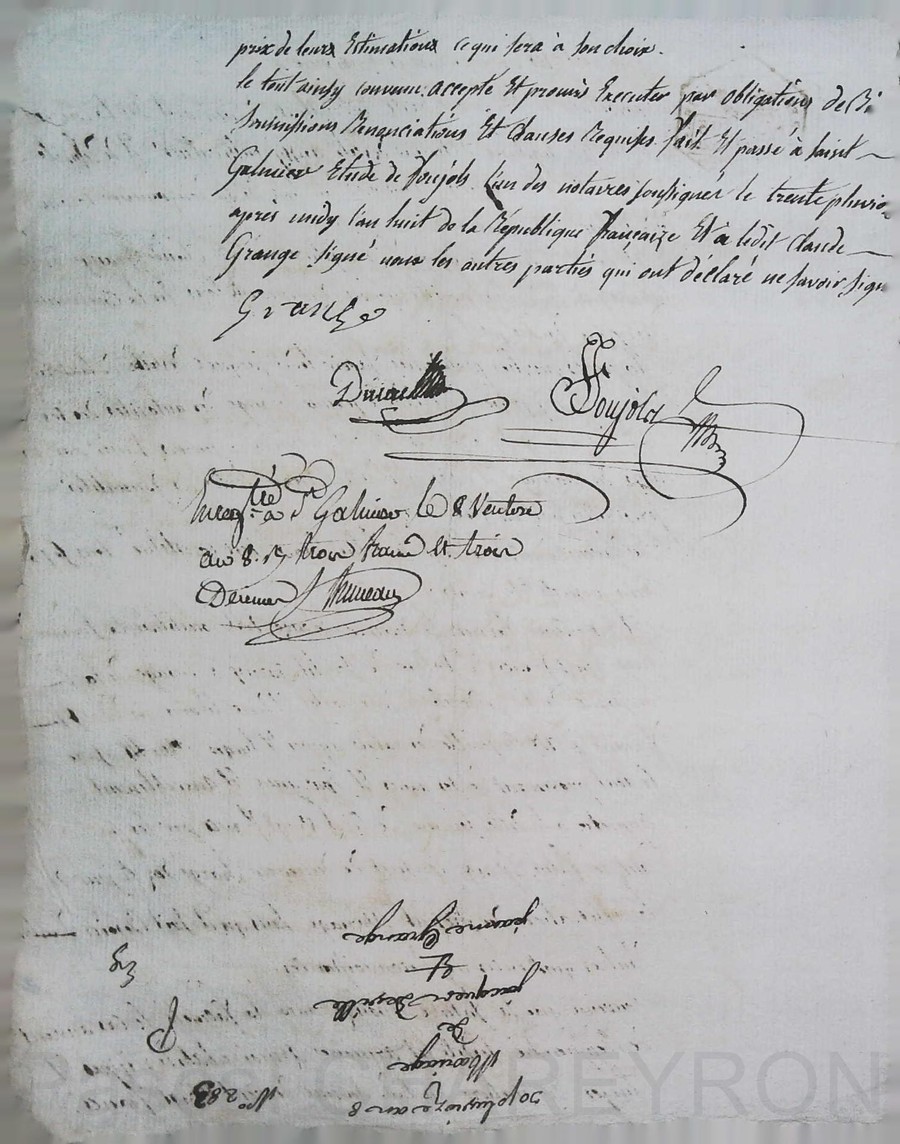 prix de leurs Estimations ce qui sera à son choix.
le tout ainsy convenu accepté Et promis Executer par obligations de Bi
Soumissions Renonciations Et Clauses Requises fait Et passé à saint
Galmier Etude de Soujols l'un des notaires soussignés le trente pluvio
après midy l'an huit de la République française Et a ledit Claude
Grange signé non les autres parties qui ont déclaré ne savoir sign
Grange
Soujols
Enregtré à St Galmier le 8 Ventose
an 8. R trois francs et trois
Decimes
jeanne Grange
Et
jacques
de
Mariage
30 pluviose an 8
N° 283
CHAREYRON